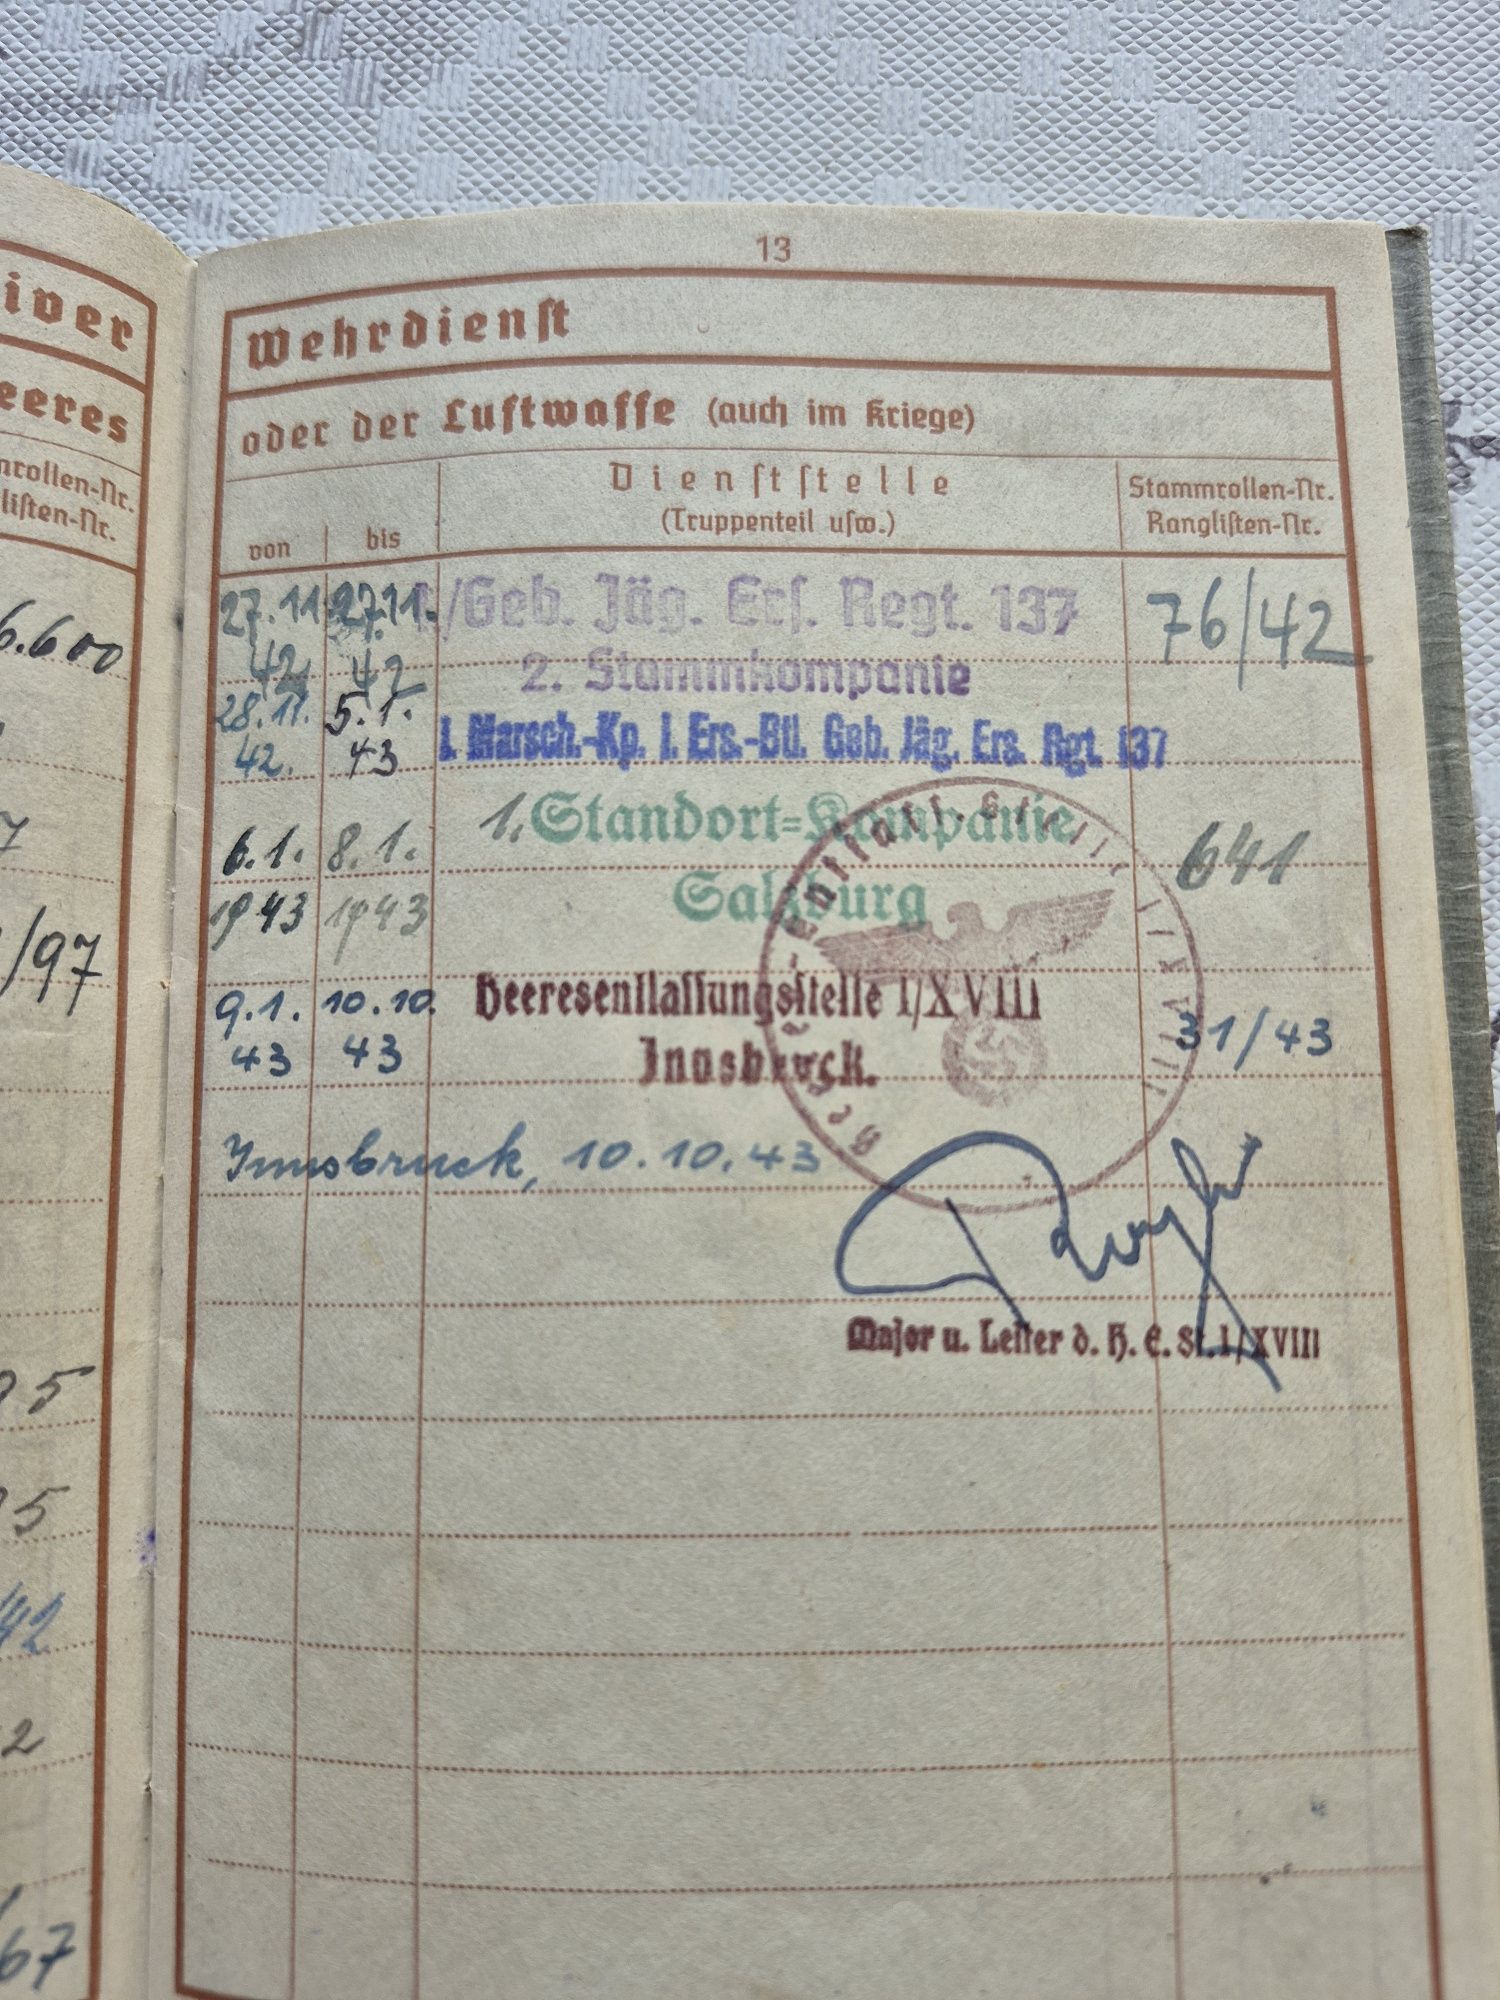 iver
eeres
nrollen-Nr.
listen-Nr.
6.600
7
/97
5
5
42
2
67
13
Wehrdienst
oder der Luftwaffe (auch im Kriege)
von
bis
Dienststelle
(Truppenteil usw.)
Stammrollen-Nr.
Ranglisten-Nr.
27.11. 27.11. 1./Geb. Jäg. Ers. Regt. 137 76/42
42 42 2. Stammkompanie
28.11. 5.1. 1. Marsch.-Kp. I. Ers.-Btl. Geb. Jäg. Ers. Rgt. 137
42. 43
6.1. 8.1. 1. Standort=Kompanie 641
1943 1943 Salzburg
9.1. 10.10. Heeresentlassungsstelle I/XVIII 31/43
43 43 Innsbruck.
Innsbruck, 10.10.43
Major u. Leiter d. H. E. St. I/XVIII